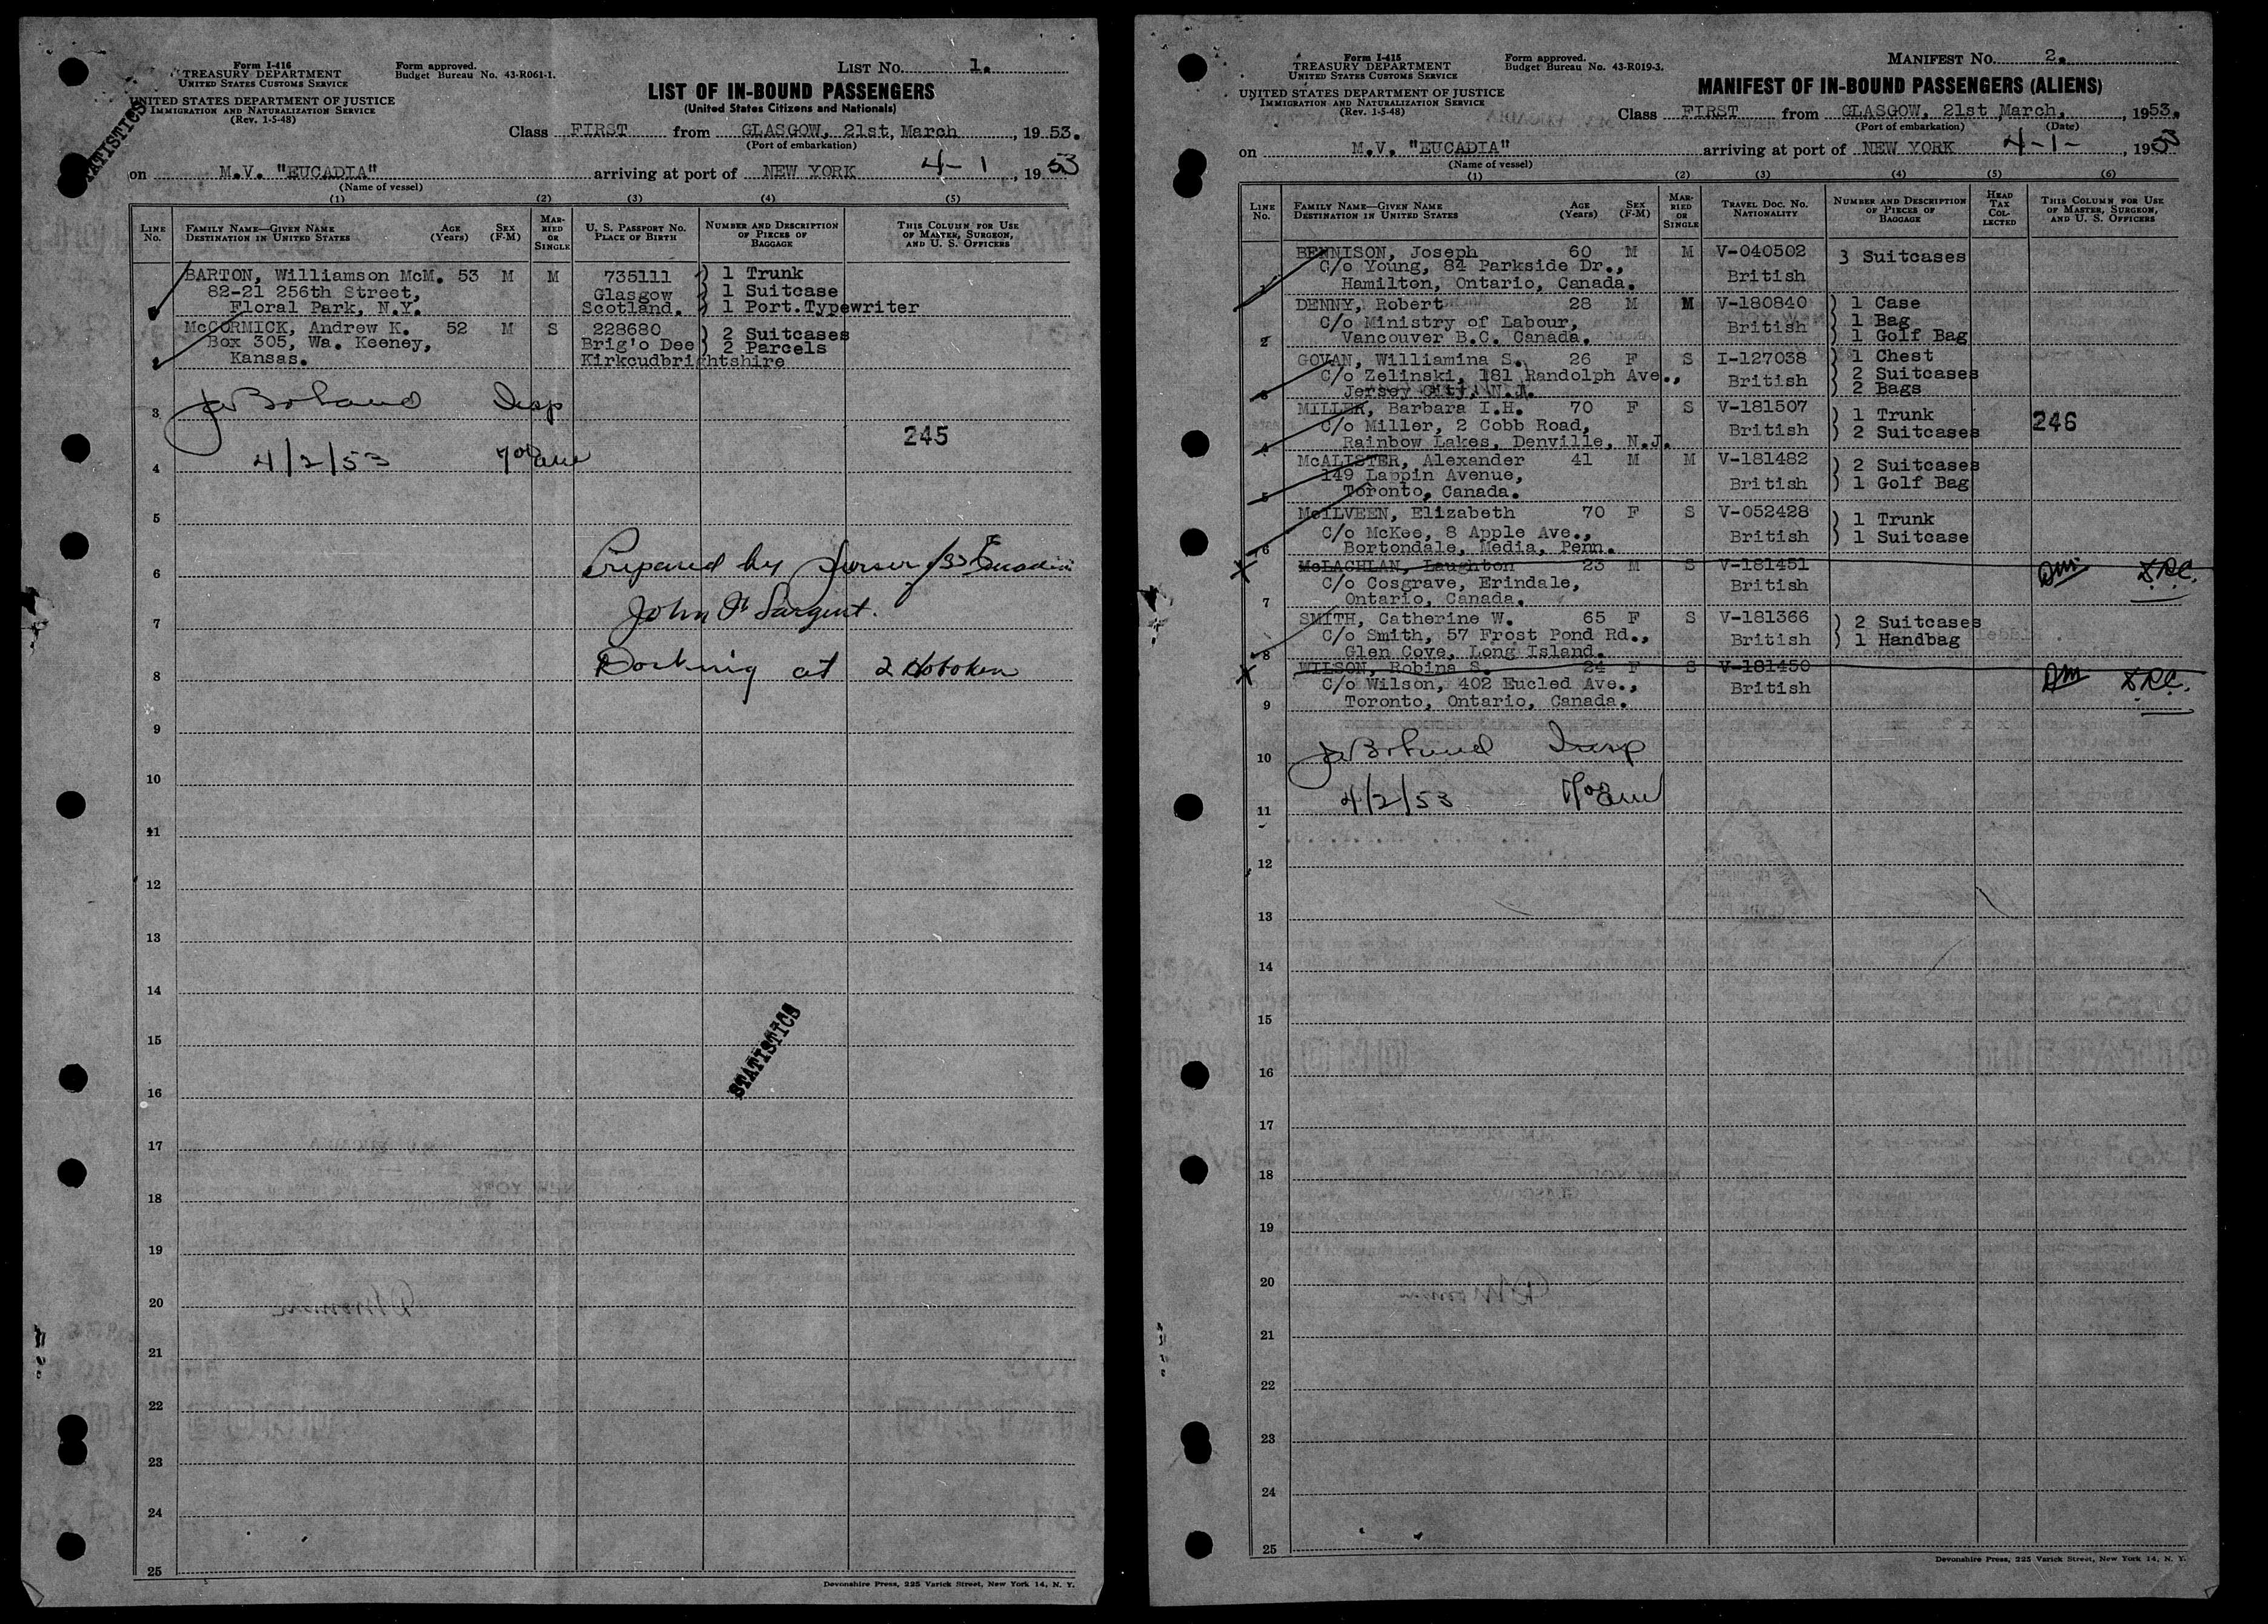 Form I-416
TREASURY DEPARTMENT
UNITED STATES CUSTOMS SERVICE
UNITED STATES DEPARTMENT OF JUSTICE
IMMIGRATION AND NATURALIZATION SERVICE
(Rev. 1-5-48)
Form approved.
Budget Bureau No. 43-R061-1.
LIST No. 1.
LIST OF IN-BOUND PASSENGERS
(United States Citizens and Nationals)
STATISTICS
Class FIRST from GLASGOW, 21st, March, 1953.
(Port of embarkation)
on M.V. "EUCADIA" arriving at port of NEW YORK 4-1, 1953
(Name of vessel)
(1) (2) (3) (4) (5)
LINE No. FAMILY NAME—GIVEN NAME DESTINATION IN UNITED STATES AGE (Years) SEX (F-M) MARRIED OR SINGLE U. S. PASSPORT NO. PLACE OF BIRTH NUMBER AND DESCRIPTION OF PIECES OF BAGGAGE THIS COLUMN FOR USE OF MASTER, SURGEON, AND U. S. OFFICERS
BARTON, Williamson McM. 53 M M 735111 ) 1 Trunk
82-21 256th Street, Glasgow ) 1 Suitcase
Floral Park, N.Y. Scotland. ) 1 Port.Typewriter
McCORMICK, Andrew K. 52 M S 228680 ) 2 Suitcases
Box 305, Wa. Keeney, Brig'o Dee ) 2 Parcels
Kansas. Kirkcudbrightshire
3 Insp
245
4 4/2/53
5
Prepared by Purser
6
John Sargent.
7
Docking at 2 Hoboken
8
9
10
11
12
13
14
15
STATISTICS
16
17
18
19
20
21
22
23
24
25
Devonshire Press, 225 Varick Street, New York 14, N. Y.
Form I-415
TREASURY DEPARTMENT
UNITED STATES CUSTOMS SERVICE
UNITED STATES DEPARTMENT OF JUSTICE
IMMIGRATION AND NATURALIZATION SERVICE
(Rev. 1-5-48)
Form approved.
Budget Bureau No. 43-R019-3.
MANIFEST No. 2.
MANIFEST OF IN-BOUND PASSENGERS (ALIENS)
Class FIRST from GLASGOW, 21st March, 1953.
(Port of embarkation) (Date)
on M.V. "EUCADIA" arriving at port of NEW YORK 4-1-, 1953
(Name of vessel)
(1) (2) (3) (4) (5) (6)
LINE No. FAMILY NAME—GIVEN NAME DESTINATION IN UNITED STATES AGE (Years) SEX (F-M) MARRIED OR SINGLE TRAVEL DOC. NO. NATIONALITY NUMBER AND DESCRIPTION OF PIECES OF BAGGAGE HEAD TAX COLLECTED THIS COLUMN FOR USE OF MASTER, SURGEON, AND U. S. OFFICERS
BENNISON, Joseph 60 M M V-040502 3 Suitcases
C/o Young, 84 Parkside Dr., British
1 Hamilton, Ontario, Canada.
DENNY, Robert 28 M M V-180840 ) 1 Case
C/o Ministry of Labour, British ) 1 Bag
2 Vancouver B.C. Canada. ) 1 Golf Bag
GOVAN, Williamina S. 26 F S I-127038 ) 1 Chest
C/o Zelinski, 181 Randolph Ave., British ) 2 Suitcases
3 Jersey City, N.J. ) 2 Bags
MILLER, Barbara I.H. 70 F S V-181507 ) 1 Trunk 246
C/o Miller, 2 Cobb Road, British ) 2 Suitcases
4 Rainbow Lakes, Denville, N.J.
McALISTER, Alexander 41 M M V-181482 ) 2 Suitcases
149 Lappin Avenue, British ) 1 Golf Bag
5 Toronto, Canada.
McILVEEN, Elizabeth 70 F S V-052428 ) 1 Trunk
C/o McKee, 8 Apple Ave., British ) 1 Suitcase
6 Bortondale, Media, Penn.
McLACHLAN, Laughton 23 M S V-181451
C/o Cosgrave, Erindale, British
7 Ontario, Canada.
SMITH, Catherine W. 65 F S V-181366 ) 2 Suitcases
C/o Smith, 57 Frost Pond Rd., British ) 1 Handbag
8 Glen Cove, Long Island.
WILSON, Robina S. 24 F S V-181450
C/o Wilson, 402 Eucled Ave., British
9 Toronto, Ontario, Canada.
10 Insp
11 4/2/53
12
13
14
15
16
17
18
19
20
21
22
23
24
25
Devonshire Press, 225 Varick Street, New York 14, N. Y.